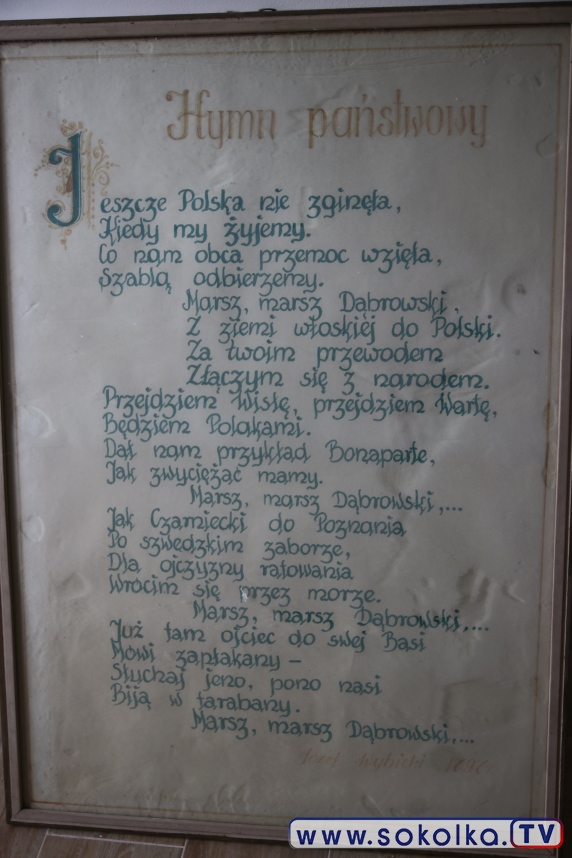 Hymn państwowy
Jeszcze Polska nie zginęła,
Kiedy my żyjemy.
Co nam obca przemoc wzięła,
Szablą odbierzemy.
Marsz, marsz Dąbrowski,
Z ziemi włoskiej do Polski.
Za twoim przewodem
Złączym się z narodem.
Przejdziem Wisłę, przejdziem Wartę,
Będziem Polakami.
Dał nam przykład Bonaparte,
Jak zwyciężać mamy.
Marsz, marsz Dąbrowski,...
Jak Czarniecki do Poznania
Po szwedzkim zaborze,
Dla ojczyzny ratowania
Wrócim się przez morze.
Marsz, marsz Dąbrowski,...
Już tam ojciec do swej Basi
Mówi zapłakany –
Słuchaj jeno, pono nasi
Biją w tarabany.
Marsz, marsz Dąbrowski,...
Józef Wybicki
www.sokolka.TV